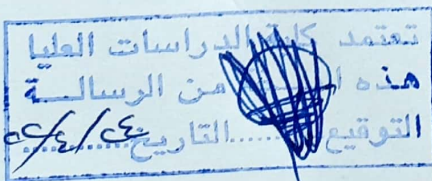 تعتمد كلية الدراسات العليا
هذه من الرسالــة
التوقيع......التاريخ......